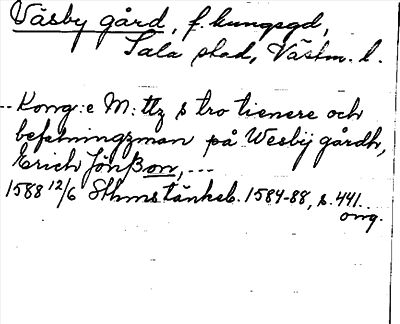 Väsby gård, f. kungsgd,
Sala stad, Västm. l.
-- Kong:e M:ttz s tro tienere och
befalningzman på Wesbij gårdh,
Erich Jönßon, ---
1588 12/6 Sthms tänkeb. 1584-88, s. 441.
omg.